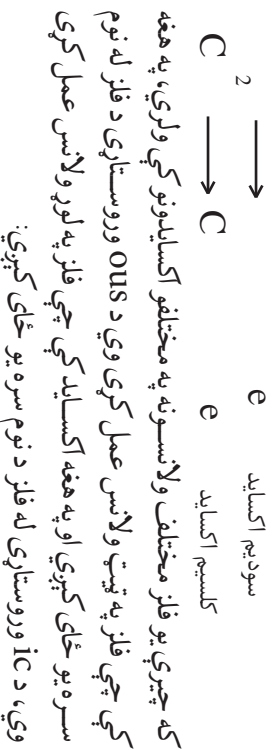 2 → e سوديم اکسايد
C → C e کلسيم اکسايد
که چيرې يو فلز مختلف ولانسونه په مختلفو اکسايدونو کې ولري، په هغه
کې چې فلز په ټيټ ولانس عمل کړی وي د ous وروستاړی د فلز له نوم
سره يو ځای کيږي او په هغه اکسايد کې چې فلز په لوړ ولانس عمل کړی
وي، د ic وروستاړی له فلز د نوم سره يو ځای کيږي: